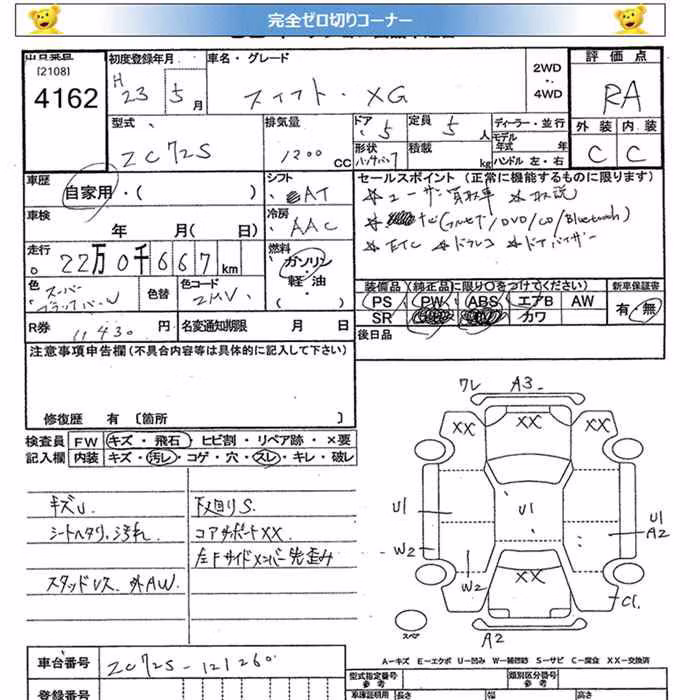 完全ゼロ切りコーナー
[2108]
4162
初度登録年月
H 23 5月
車名・グレード
スイフト・XG
2WD
・
4WD
評価点
RA
外装 内装
C C
型式
ZC72S
排気量
1200 CC
ドア 5
定員 5人
ディーラー・並行
モデル年式 年
形状 ハッチバック
積載 kg
ハンドル 左・右
車歴
自家用・( )
シフト
AT
車検
年 月( 日)
冷房
AAC
走行
22万0千667km
燃料
ガソリン・軽・油
色
スーパーブラックパールU
色替
色コード
ZMV
R券
11430円
名変通知期限 月 日
セールスポイント (正常に機能するものに限ります)
☆ユーザー買取車 ☆取説
☆ナビ(フルセグ/DVD/CD/Bluetooth)
☆ETC ☆ドラレコ ☆ドアバイザー
装備品(純正品に限り○をつけてください)
新車保証書
PS PW ABS エアB AW
SR カワ
有・無
後日品
注意事項申告欄(不具合内容等は具体的に記入して下さい)
修復歴 有 〔箇所 〕
検査員記入欄
FW キズ・飛石・ヒビ割・リペア跡・×要
内装 キズ・汚レ・コゲ・穴・スレ・キレ・破レ
キズU.
シートヘタリ、汚れ.
スタッドレス. 外AW.
下廻りS.
コアサポートXX
左Fサイドメンバー先歪み
ワレ A3
XX XX XX
U1 U1 U1
A2
W2 W2
XX
C1.
スペア
A2
A-キズ E-エクボ U-凹み W-補修跡 S-サビ C-腐食 XX-交換済
車台番号
ZC72S-121260
登録番号
型式指定番号 参考
類別区分番号 参考
車庫証明用 参考 長さ 幅 高さ